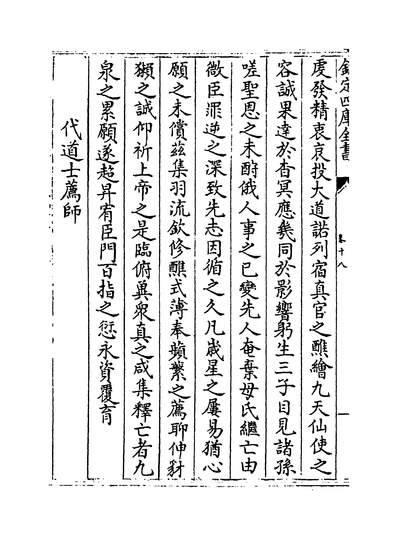 欽定四庫全書
卷十八
一
虔發精衷哀投大道諾列宿真官之醮繪九天仙使之
容誠果達於杳冥應幾同於影響躬生三子目見諸孫
嗟聖恩之未酹俄人事之已變先人奄棄母氏繼亡由
微臣罪逆之深致先志因循之久凡歲星之屢易猶心
願之未償兹集羽流欽修醮式薄奉蘋蘩之薦聊伸豺
獺之誠仰祈上帝之是臨俯冀衆真之咸集釋亡者九
泉之累願遂超昇宥臣門百指之愆永資覆育
代道士薦師